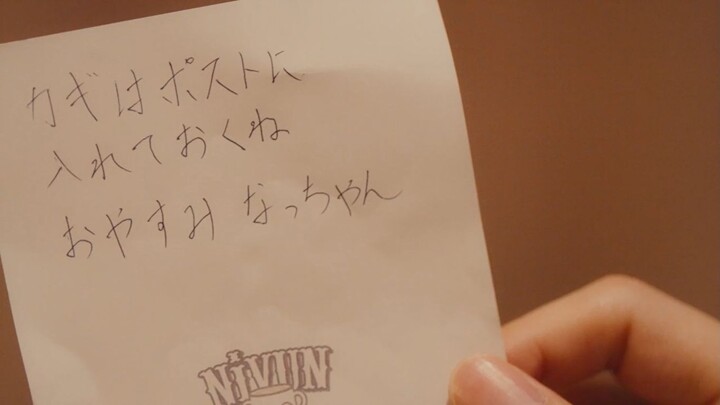 カギはポストに
入れておくね
おやすみ なっちゃん
NiVIIN